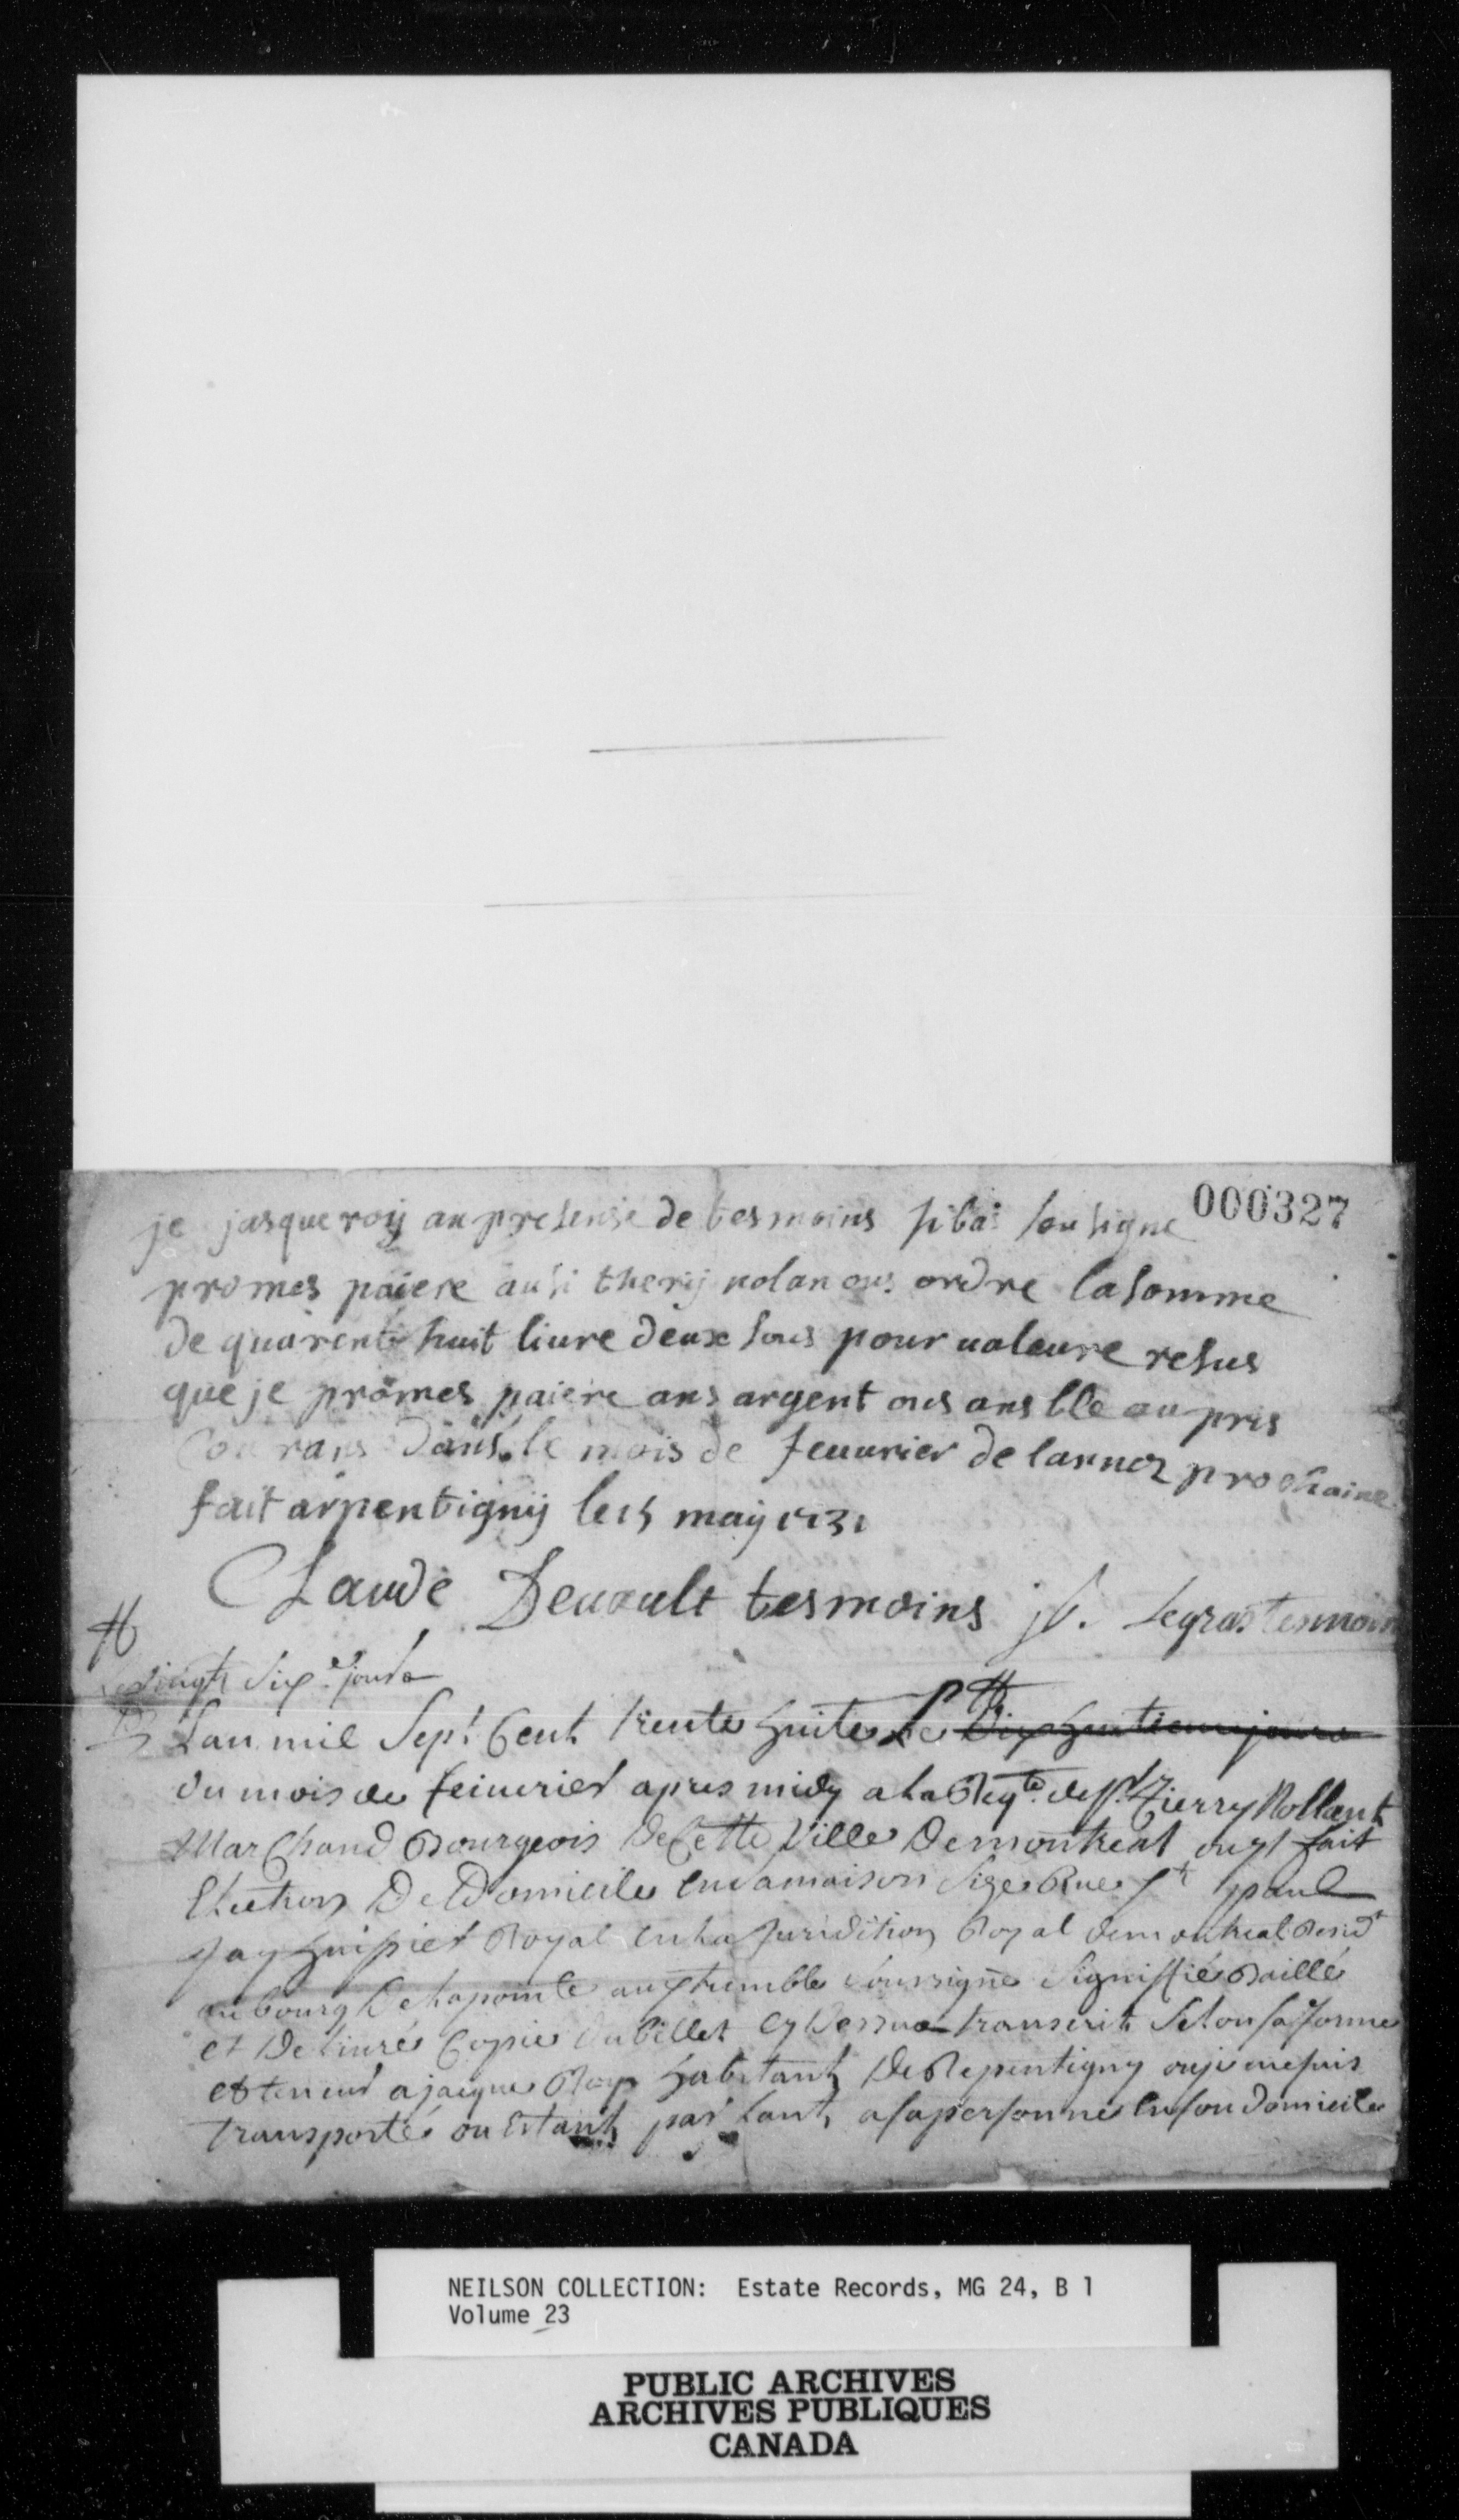 000327
je jasque roy an presensè de tesmoins sibas sousigne
promes paiere ausi theriy nolan ous ordre lasomme
de quarente huit liure deux sous pour ualeure resus
que je promes paiere ans argent ous ans blé au pris
Courans dans le mois de feuurier de lannez prochaine
fait arpentigniy le 15 maij 1731
Claude Deuault tesmoins j b. Legras tesmoin
#
Le vingt Six.e jour
Lan mil Sept Cent trente huite Le Dix huitieme jour
du mois de feiuvrier apres midy a La Reqte. de Sr. Tierry Nollant
Marchand Bourgeois De Cette Ville De montreal ou yl fait
Election De Domicile En Sa maison Size Rue St paul
Jay huissier Royal En La Juridition Royal de montreal Residt
au bourg De La pointe aux tremble Soussigné Signiffié Baillé
et De Liuré Copie du billet Cy Dessus transcrit Selon Sa forme
et teneur a jacque Roy habitant De Repentigny ou je me suis
transporté ou Estant parlant a sa personne En son Domicile
NEILSON COLLECTION: Estate Records, MG 24, B 1
Volume 23
PUBLIC ARCHIVES
ARCHIVES PUBLIQUES
CANADA